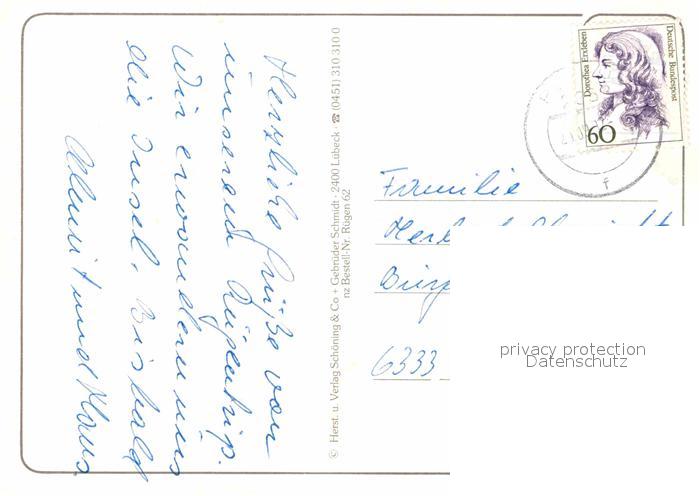 Herzliche Grüße von
unserem Rügentrip.
Wir erwandern uns
die Insel. Bis bald
und Klaus
© Herst. u. Verlag Schöning & Co + Gebrüder Schmidt · 2400 Lübeck · ☎ (0451) 310 310 0
nz Bestell-Nr. Rügen 62
Deutsche Bundespost
Dorothea Erxleben
60
f
Familie
6333
privacy protection
Datenschutz